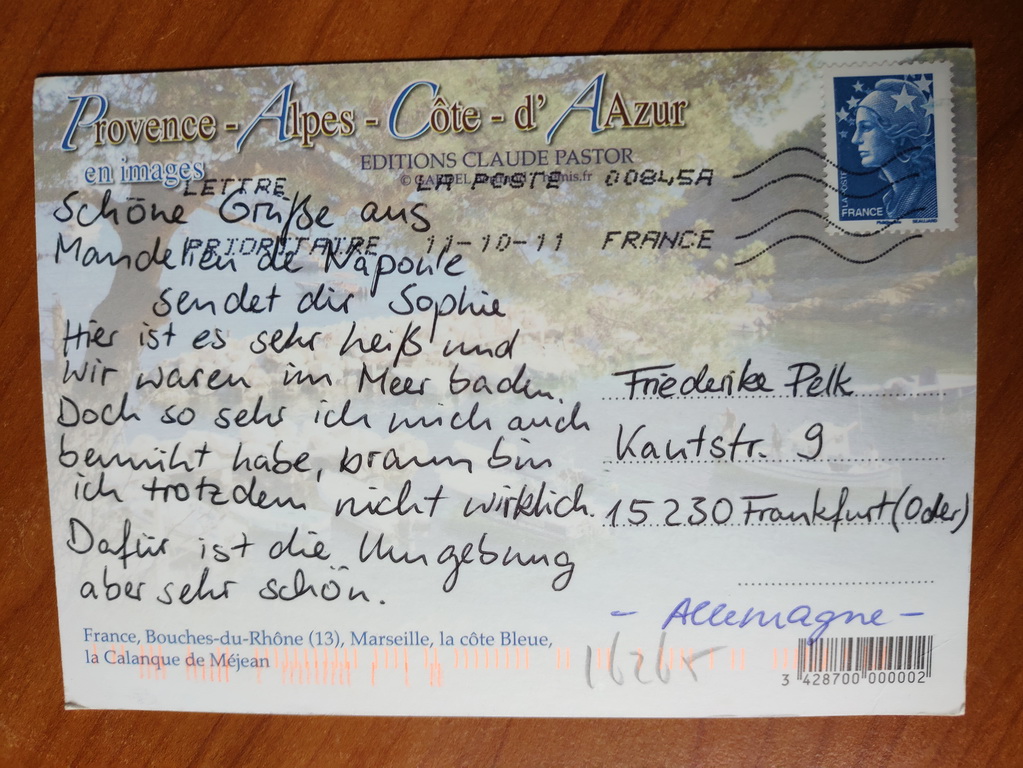 Provence - Alpes - Côte - d' AAzur
en images
EDITIONS CLAUDE PASTOR
LETTRE LA POSTE 00845A
PRIORITAIRE 11-10-11 FRANCE
LA POSTE
FRANCE
Schöne Grüße aus
Mandelieu de Napoule
sendet dir Sophie
Hier ist es sehr heiß und
wir waren im Meer baden.
Doch so sehr ich mich auch
bemüht habe, braun bin
ich trotzdem nicht wirklich.
Dafür ist die Umgebung
aber sehr schön.
Friederike Pelk
Kantstr. 9
15230 Frankfurt (Oder)
- Allemagne -
France, Bouches-du-Rhône (13), Marseille, la côte Bleue,
la Calanque de Méjean
16265
3 428700 000002